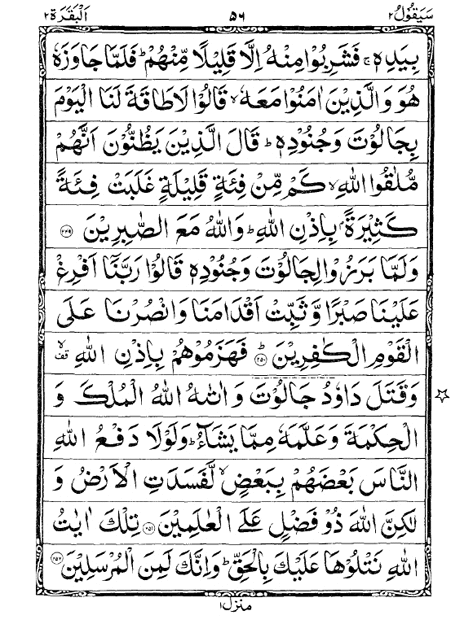 سَيَقُوْلُ ٢ ٥٦ اَلْبَقَرَة ٢
بِيَدِهٖ ۚ فَشَرِبُوْا مِنْهُ اِلَّا قَلِيْلًا مِّنْهُمْ ؕ فَلَمَّا جَاوَزَهٗ
هُوَ وَالَّذِيْنَ اٰمَنُوْا مَعَهٗ ۙ قَالُوْا لَا طَاقَةَ لَنَا الْيَوْمَ
بِجَالُوْتَ وَجُنُوْدِهٖ ؕ قَالَ الَّذِيْنَ يَظُنُّوْنَ اَنَّهُمْ
مُّلٰقُوا اللّٰهِ ۙ كَمْ مِّنْ فِئَةٍ قَلِيْلَةٍ غَلَبَتْ فِئَةً
كَثِيْرَةًۢ بِاِذْنِ اللّٰهِ ؕ وَاللّٰهُ مَعَ الصّٰبِرِيْنَ ﴿٢٤٩﴾
وَلَمَّا بَرَزُوْا لِجَالُوْتَ وَجُنُوْدِهٖ قَالُوْا رَبَّنَاۤ اَفْرِغْ
عَلَيْنَا صَبْرًا وَّثَبِّتْ اَقْدَامَنَا وَانْصُرْنَا عَلَى
الْقَوْمِ الْكٰفِرِيْنَ ؕ﴿٢٥٠﴾ فَهَزَمُوْهُمْ بِاِذْنِ اللّٰهِ ۙ قف
وَقَتَلَ دَاوٗدُ جَالُوْتَ وَاٰتٰىهُ اللّٰهُ الْمُلْكَ وَ
الْحِكْمَةَ وَعَلَّمَهٗ مِمَّا يَشَآءُ ؕ وَلَوْلَا دَفْعُ اللّٰهِ
النَّاسَ بَعْضَهُمْ بِبَعْضٍ ۙ لَّفَسَدَتِ الْاَرْضُ وَ
لٰكِنَّ اللّٰهَ ذُوْ فَضْلٍ عَلَى الْعٰلَمِيْنَ ﴿٢٥١﴾ تِلْكَ اٰيٰتُ
اللّٰهِ نَتْلُوْهَا عَلَيْكَ بِالْحَقِّ ؕ وَاِنَّكَ لَمِنَ الْمُرْسَلِيْنَ ﴿٢٥٢﴾
منزل ١